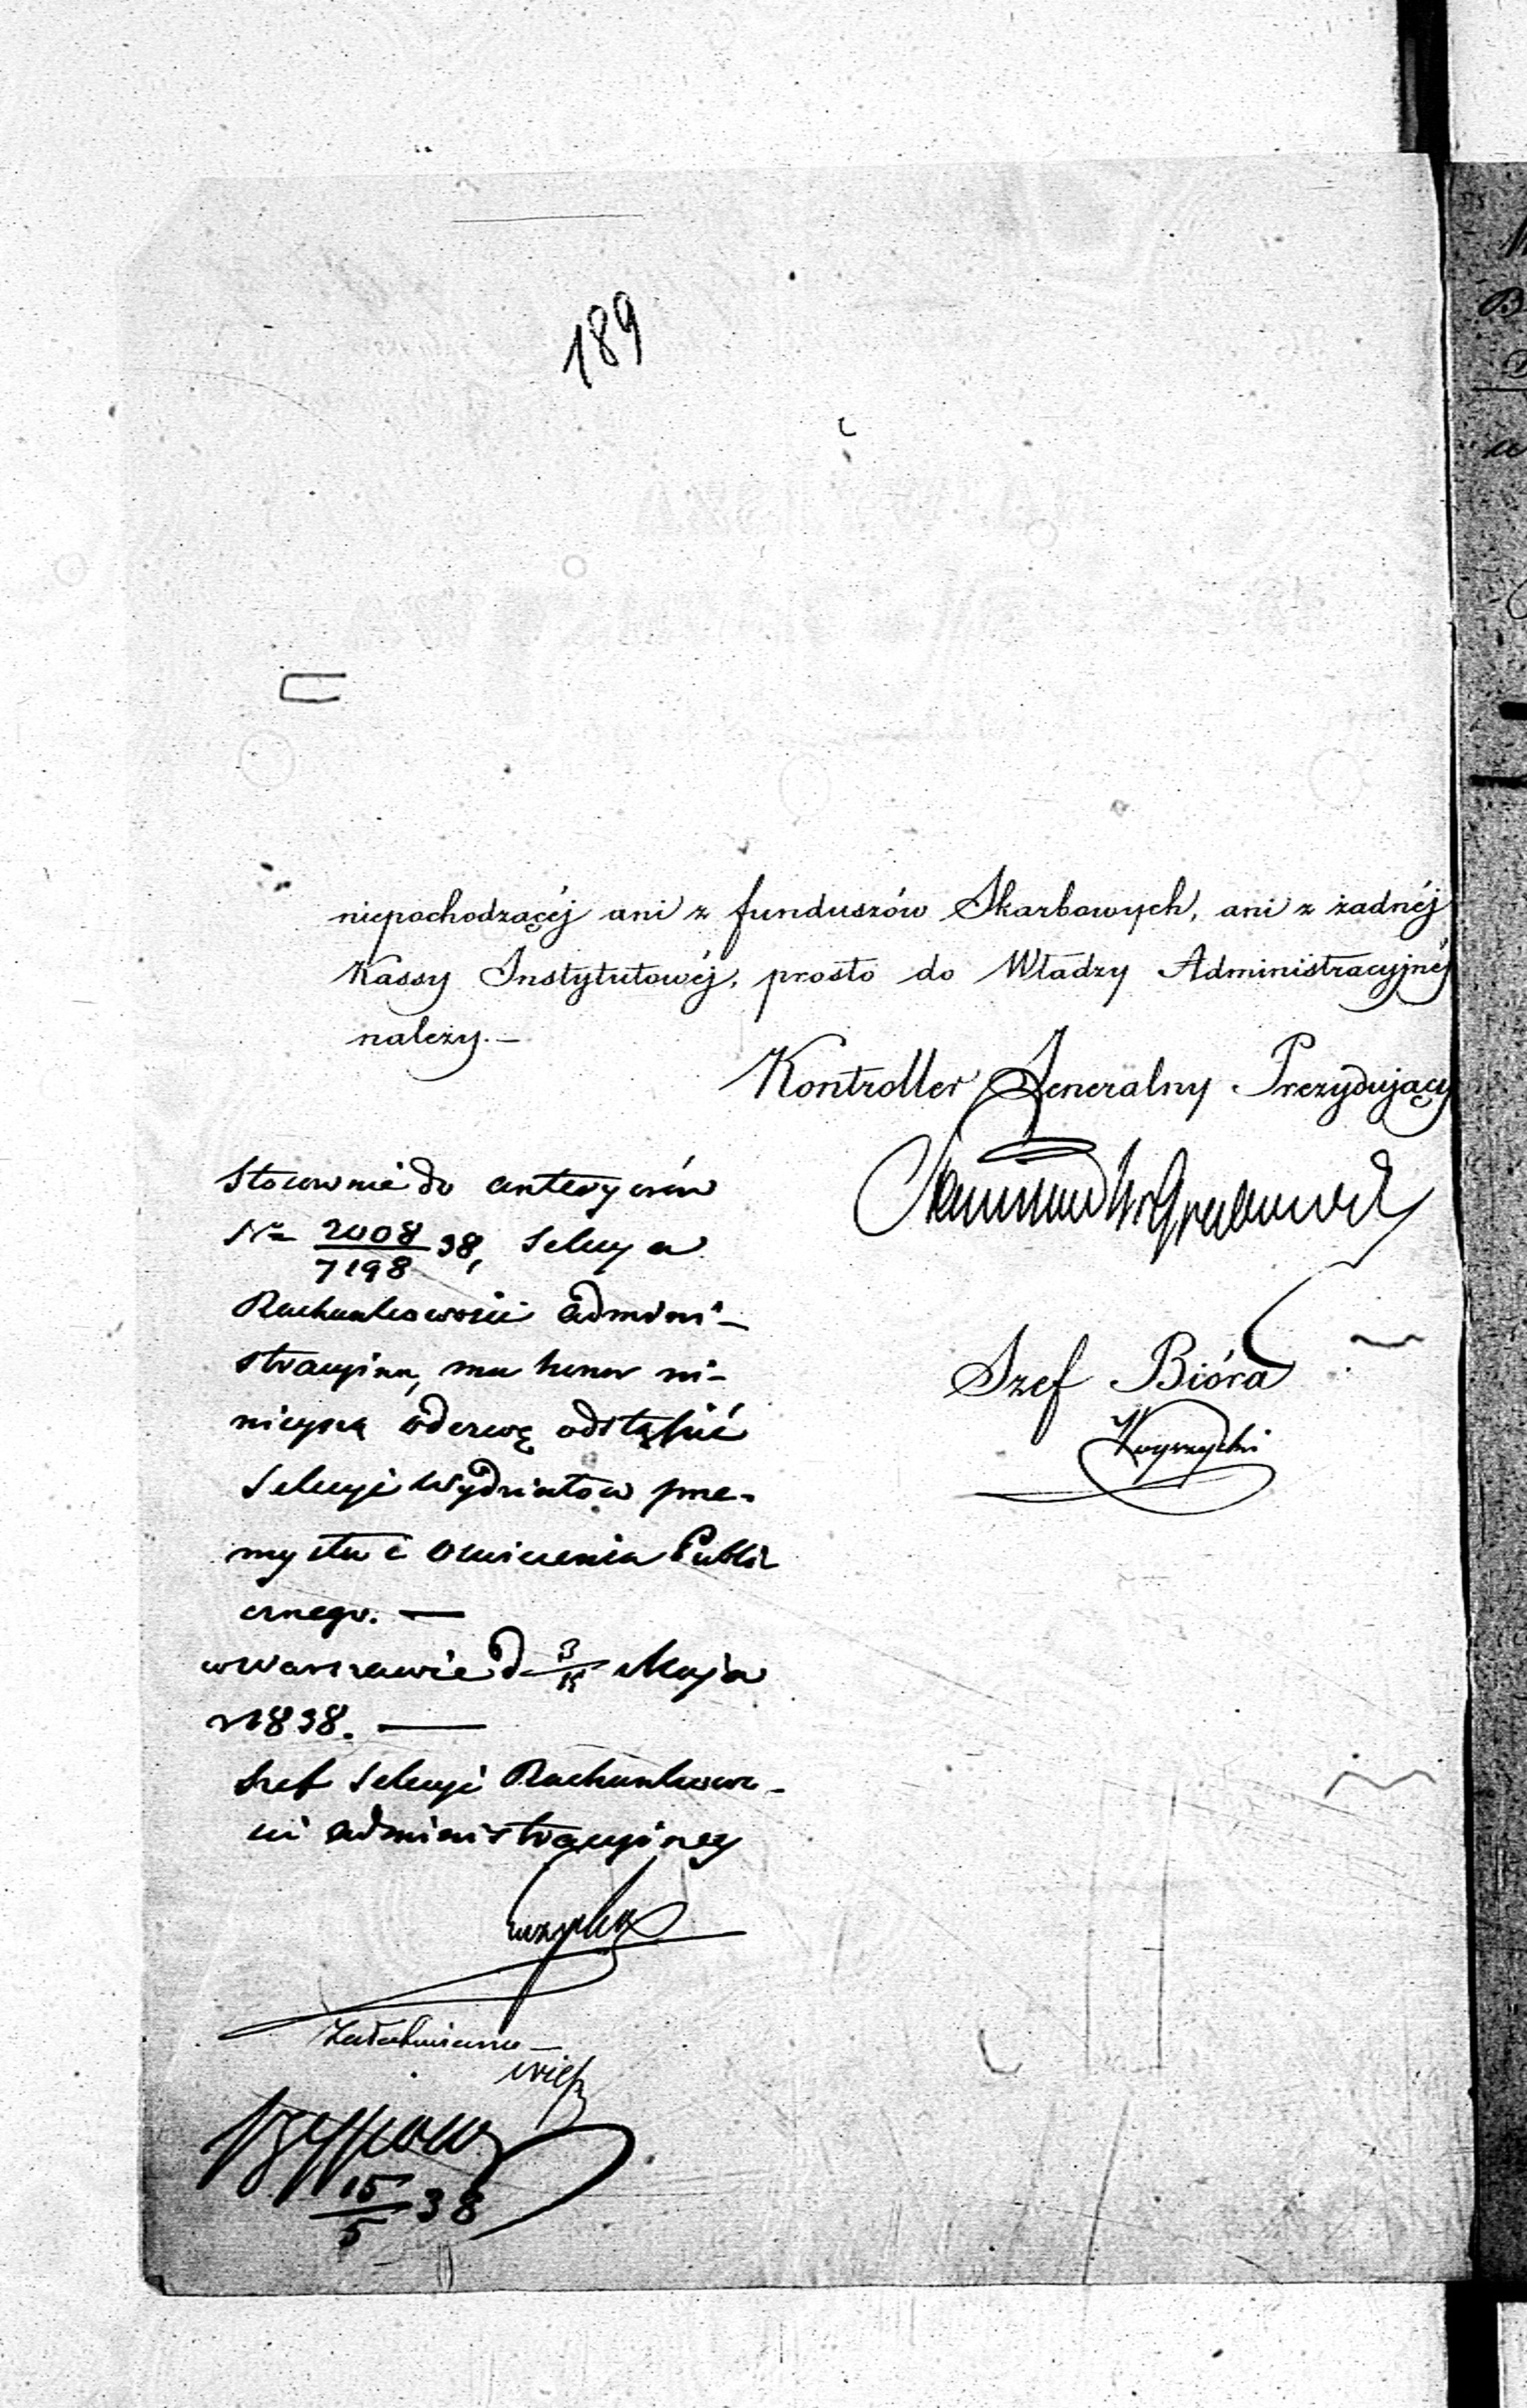 189
niepochodzącéj ani z funduszów Skarbowych, ani z żadnéj
Kassy Instytutowéj, prosto do Władzy Administracyjnéj
należy. —
Kontroller Jeneralny Prezydujący
Szef Bióra
Stosownie do anteryorów
Nr 2008/7198 38, Sekcya
Rachunkowości admini-
stracyjna, ma honor ni-
nieyszą odezwę odstąpić
Sekcyi Wydziałów prze-
mysłu i Oświecenia Publi
cznego. —
w Warszawie d 3/15 Maja
r 1838. —
Szef Sekcyi Rachunkowo-
ści administracyjney
15/5 38